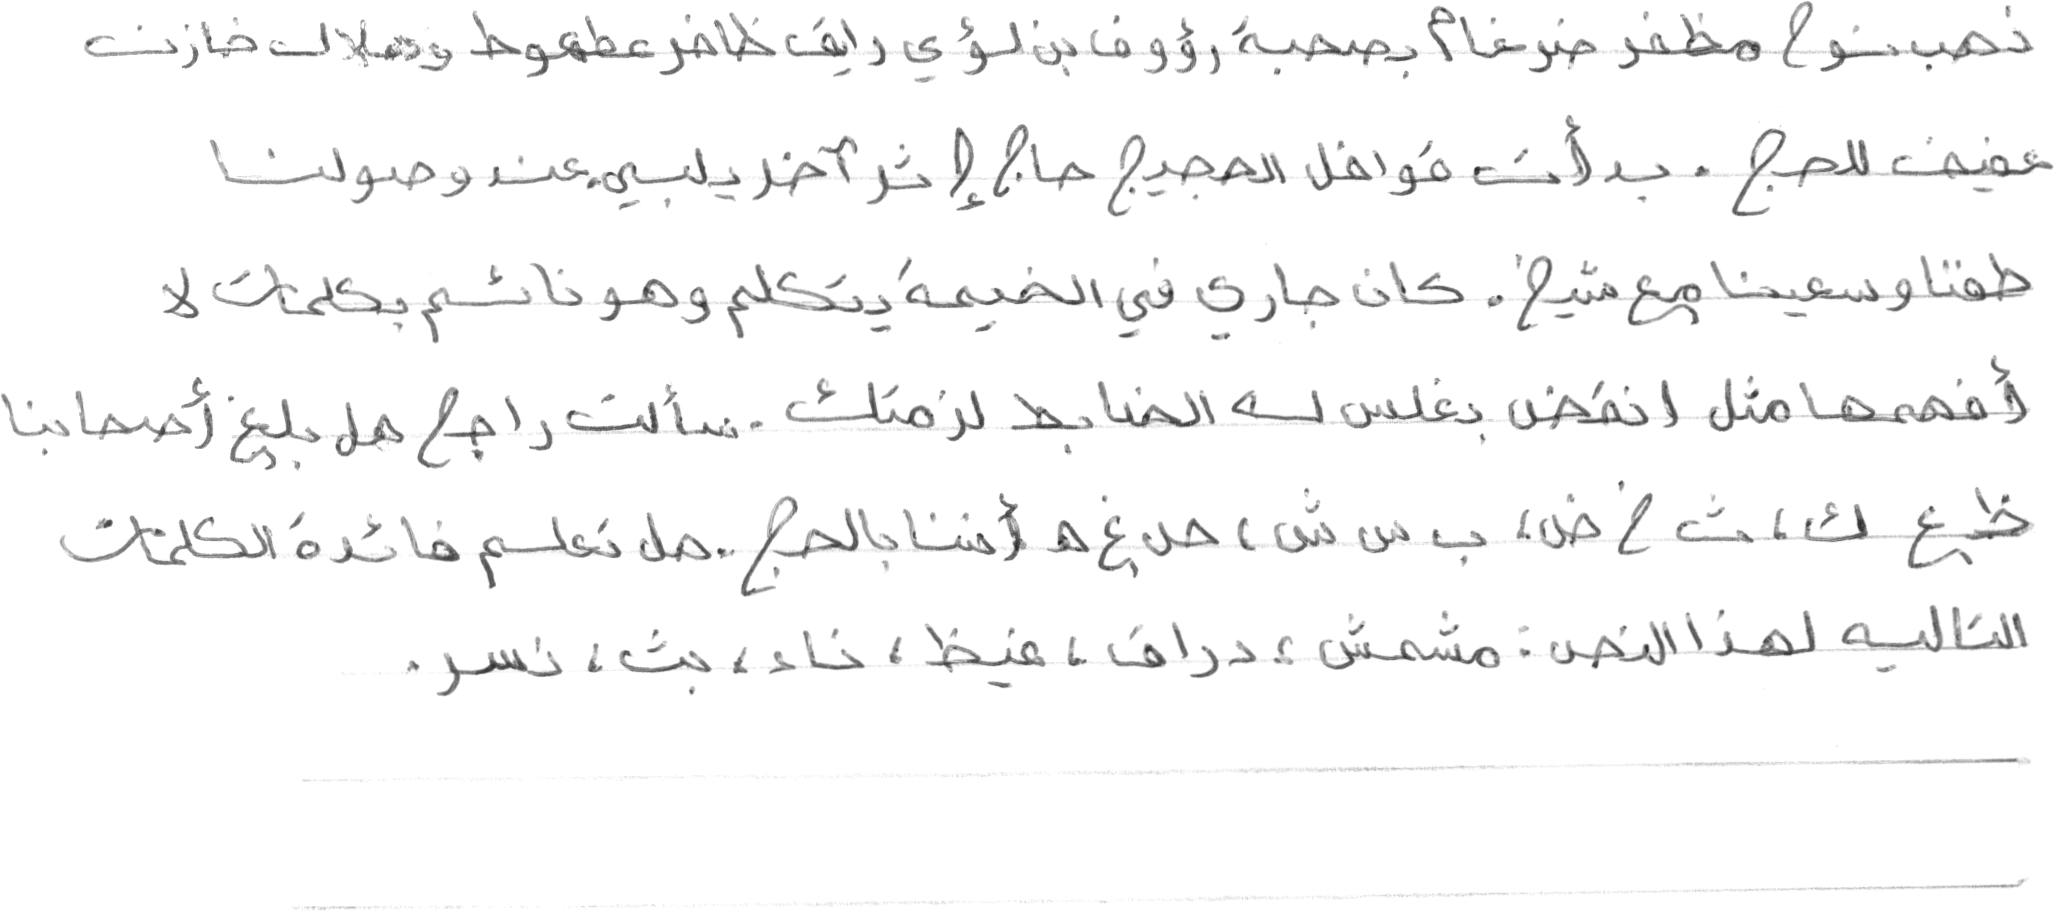 ذهب نوح مظفر ضرغام بصحبة رؤوف بن لؤي رايق ظافر عطعوط وهلال خازن
عفيف للحج . بدأت قوافل الحجيج حاج إثر آخر يلبي. عند وصولنا
طفنا وسعينا مع شيخ . كان جاري في الخيمة يتكلم وهو نائم بكلمات لا
أفهمها مثل انقض بغلس له الضابط لزمتك . سألت راجح هل بلغ أصحابنا
ظ ع ك ، ث خ ض ، ب س ش ، ص غ ه أننا بالحج . هل تعلم فائدة الكلمات
التاليه لهذا النص : مشمش ، دراق ، غيظ ، ناء ، بث ، نسر .